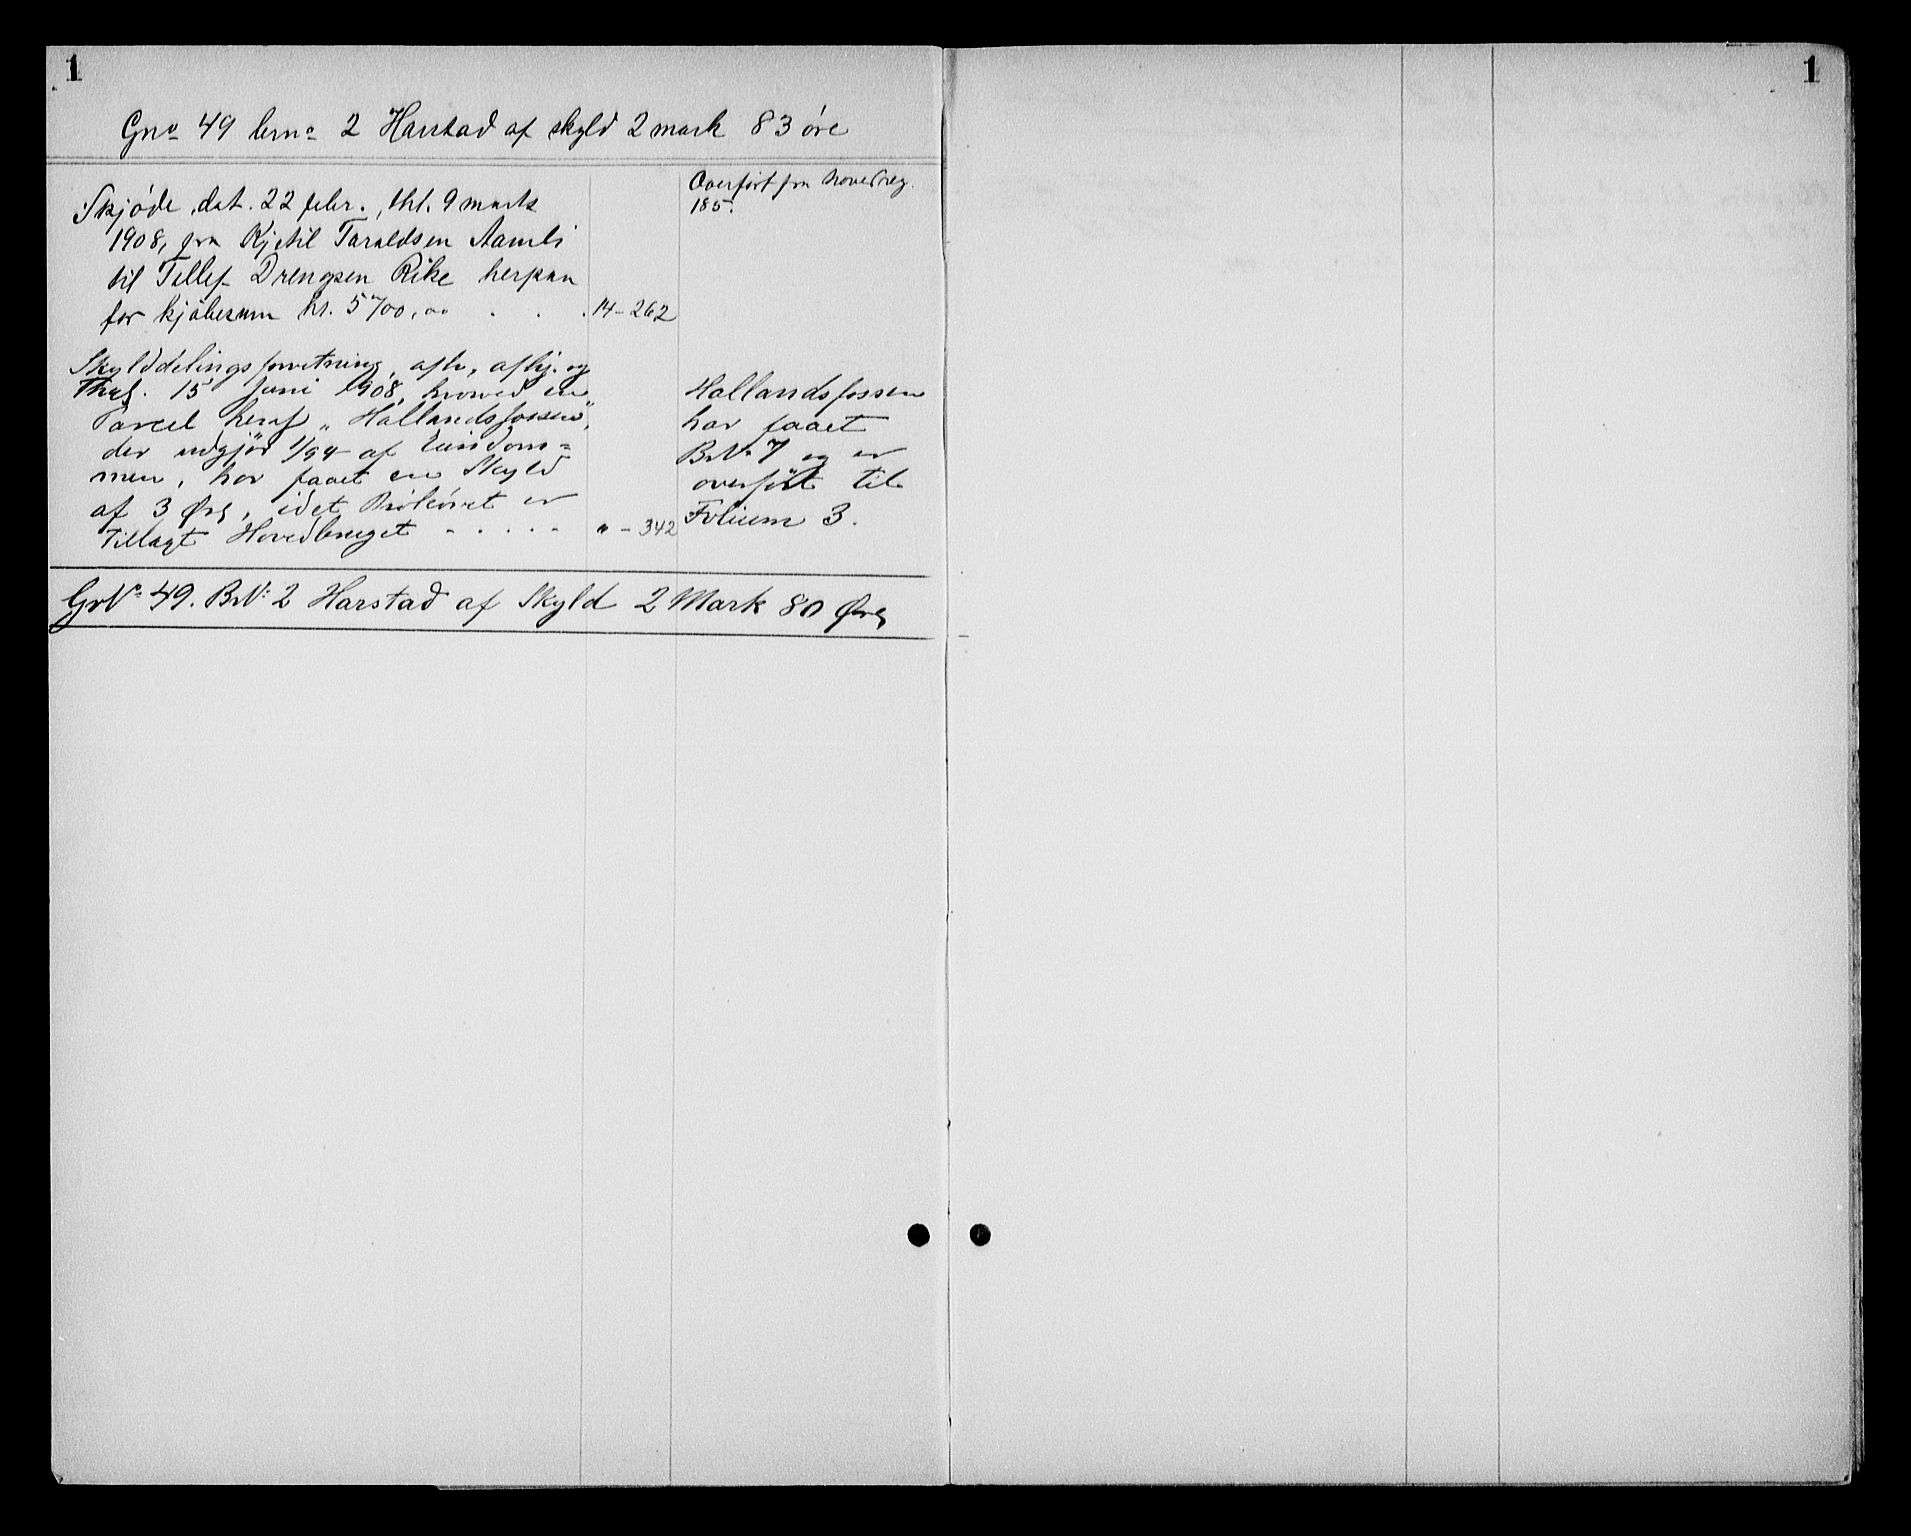 1
1
Gno 49 brno 2 Harstad af skyld 2 mark 83 øre
Skjøde, dat. 22 febr., thl. 9 marts
1908, fra Kjetil Taraldsen Aamli
til Tellef Drengsen Rike herpaa
for kjøbesum kr. 5700,00 . . . 14-262
Overført fra hovedreg.
185.
Skylddelingsforretning, afh., afhj. og
Thgl. 15 Juni 1908, hvorved en
Parcel heraf "Hallandsfossen",
der udgjør 1/94 af Eiendom=
men, har faaet en Skyld
af 3 Øre, idet Brøkøret er
Tillagt Hovedbruget - - - - - " - 342
Hallandsfossen
har faaet
BrN: 7 og er
overført til
Folium 3.
GrN: 49. BrN: 2 Harstad af Skyld 2 Mark 80 Øre